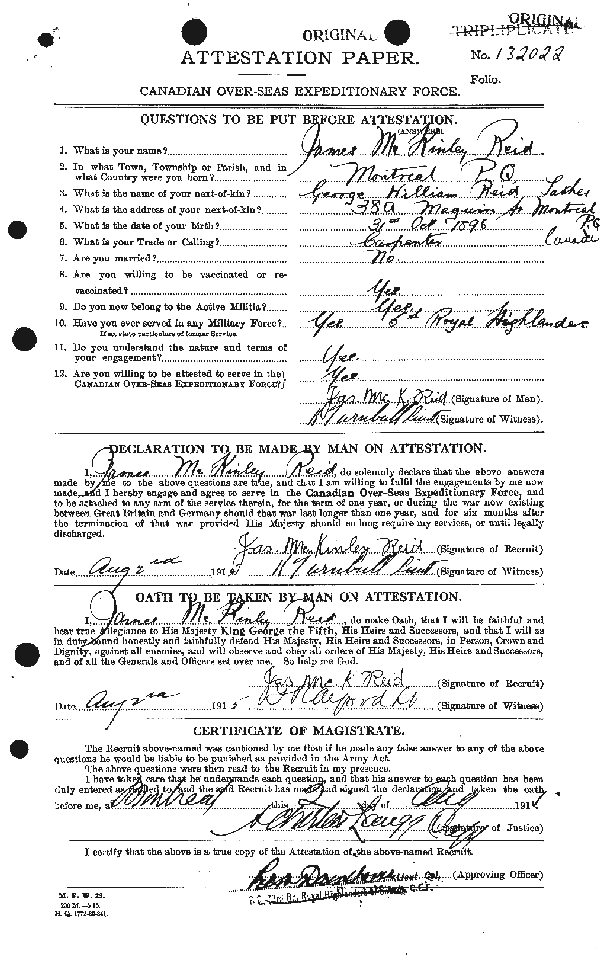 ORIGINAL
ORIGINAL
TRIPLICATE
ATTESTATION PAPER.
No. 132022
Folio.
CANADIAN OVER-SEAS EXPEDITIONARY FORCE.
QUESTIONS TO BE PUT BEFORE ATTESTATION.
(ANSWERS)
1. What is your name? James Mc Kinley Reid
2. In what Town, Township or Parish, and in
what Country were you born? Montreal P.Q
3. What is the name of your next-of-kin? George William Reid Father
4. What is the address of your next-of-kin? 380 Maguire St Montreal
P.Q
5. What is the date of your birth? 31st Oct 1896
Canada
6. What is your Trade or Calling? Carpenter
7. Are you married? No
8. Are you willing to be vaccinated or re-
vaccinated? Yes
9. Do you now belong to the Active Militia? Yes
10. Have you ever served in any Military Force? Yes Royal Highlanders
If so, state particulars of former Service.
11. Do you understand the nature and terms of
your engagement? Yes
12. Are you willing to be attested to serve in the
CANADIAN OVER-SEAS EXPEDITIONARY FORCE? Yes
Jas Mc K. Reid (Signature of Man).
Turnbull Lieut (Signature of Witness).
DECLARATION TO BE MADE BY MAN ON ATTESTATION.
I, James Mc Kinley Reid, do solemnly declare that the above answers
made by me to the above questions are true, and that I am willing to fulfil the engagements by me now
made, and I hereby engage and agree to serve in the Canadian Over-Seas Expeditionary Force, and
to be attached to any arm of the service therein, for the term of one year, or during the war now existing
between Great Britain and Germany should that war last longer than one year, and for six months after
the termination of that war provided His Majesty should so long require my services, or until legally
discharged.
Jas. McKinley Reid (Signature of Recruit)
Date Aug 2nd 191 Turnbull Lieut (Signature of Witness)
OATH TO BE TAKEN BY MAN ON ATTESTATION.
I, James Mc Kinley Reid, do make Oath, that I will be faithful and
bear true Allegiance to His Majesty King George the Fifth, His Heirs and Successors, and that I will as
in duty bound honestly and faithfully defend His Majesty, His Heirs and Successors, in Person, Crown and
Dignity, against all enemies, and will observe and obey all orders of His Majesty, His Heirs and Successors,
and of all the Generals and Officers set over me. So help me God.
Jas Mc K Reid (Signature of Recruit)
Date Aug 2nd 1915 (Signature of Witness)
CERTIFICATE OF MAGISTRATE.
The Recruit above-named was cautioned by me that if he made any false answer to any of the above
questions he would be liable to be punished as provided in the Army Act.
The above questions were then read to the Recruit in my presence.
I have taken care that he understands each question, and that his answer to each question has been
duly entered as replied to, and the said Recruit has made and signed the declaration and taken the oath
before me, at Montreal this 2 day of Aug 191
(Signature of Justice)
I certify that the above is a true copy of the Attestation of the above-named Recruit.
Lieut. Col. (Approving Officer)
O.C. 73rd Bn. Royal Highlanders of Canada, C.E.F.
M. F. W. 23.
H. Q. 1772-39-241.